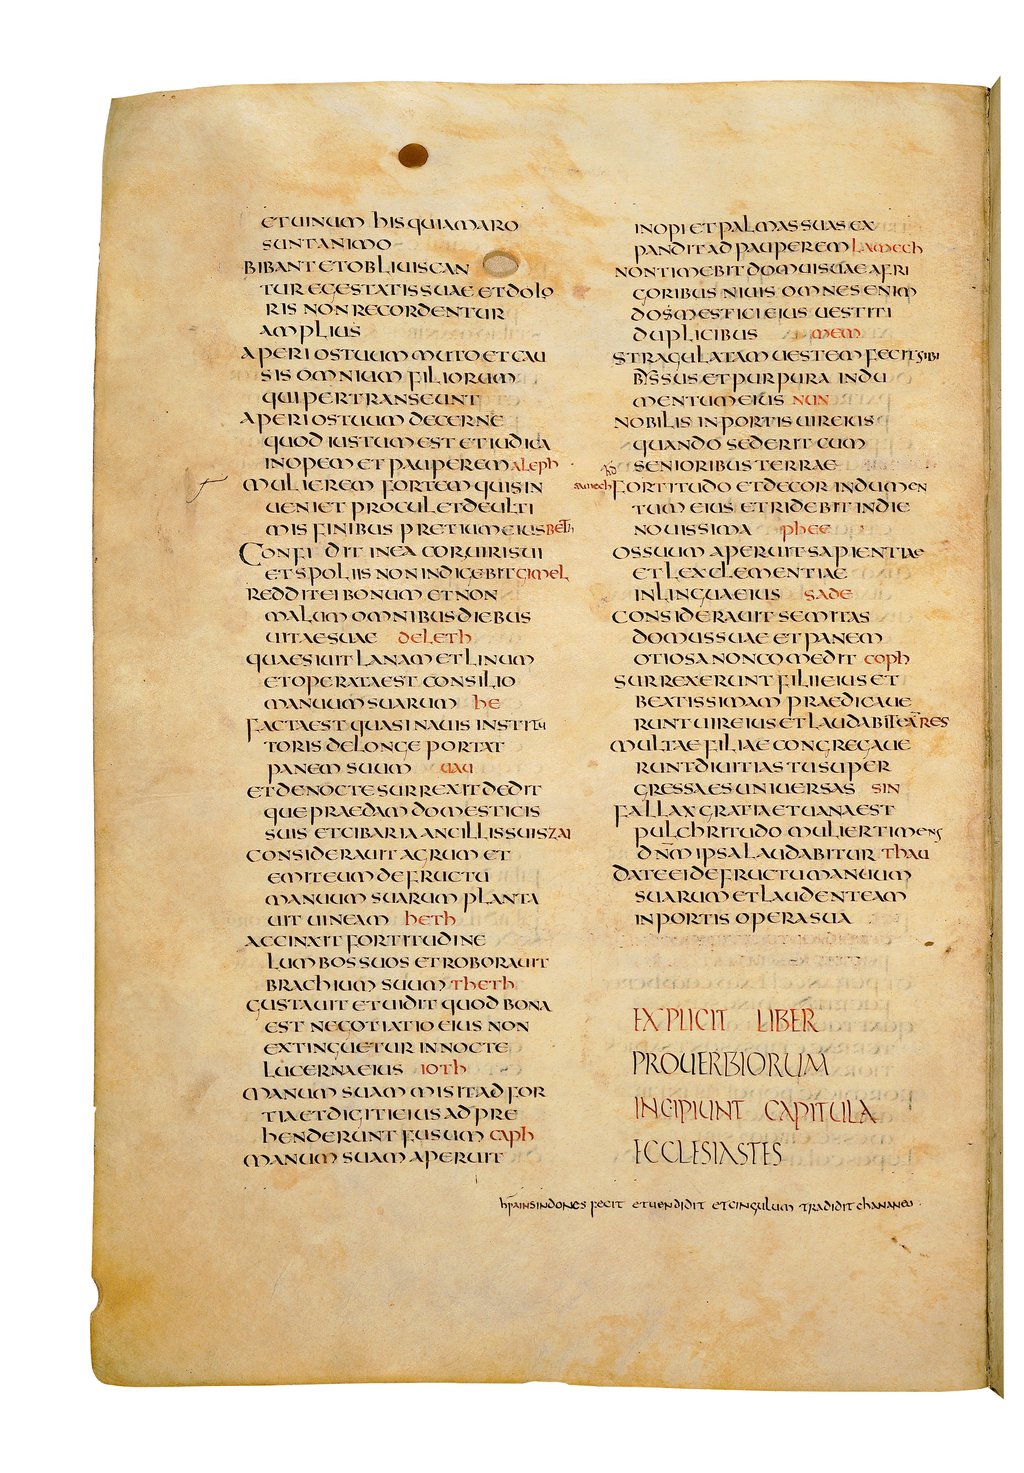 ET UINUM HIS QUI AMARO
SUNT ANIMO
BIBANT ET OBLIUISCAN
TUR EGESTATIS SUAE ET DOLO
RIS NON RECORDENTUR
AMPLIUS
APERI OS TUUM MUTO ET CAU
SIS OMNIUM FILIORUM
QUI PERTRANSEUNT
APERI OS TUUM DECERNE
QUOD IUSTUM EST ET IUDICA
INOPEM ET PAUPEREM ALEPH
MULIEREM FORTEM QUIS IN
UENIET PROCUL ET DE ULTI
MIS FINIBUS PRETIUM EIUS BETH
CONFIDIT IN EA COR UIRI SUI
ET SPOLIIS NON INDIGEBIT GIMEL
REDDIT EI BONUM ET NON
MALUM OMNIBUS DIEBUS
UITAE SUAE DELETH
QUAESIUIT LANAM ET LINUM
ET OPERATA EST CONSILIO
MANUUM SUARUM HE
FACTA EST QUASI NAUIS INSTITU
TORIS DE LONGE PORTAT
PANEM SUUM UAU
ET DE NOCTE SURREXIT DEDIT
QUE PRAEDAM DOMESTICIS
SUIS ET CIBARIA ANCILLIS SUIS ZAI
CONSIDERAUIT AGRUM ET
EMIT EUM DE FRUCTU
MANUUM SUARUM PLANTA
UIT UINEAM HETH
ACCINXIT FORTITUDINE
LUMBOS SUOS ET ROBORAUIT
BRACHIUM SUUM THETH
GUSTAUIT ET UIDIT QUOD BONA
EST NEGOTIATIO EIUS NON
EXTINGUETUR IN NOCTE
LUCERNA EIUS IOTH
MANUM SUAM MISIT AD FOR
TIA ET DIGITI EIUS ADPRE
HENDERUNT FUSUM CAPH
MANUM SUAM APERUIT
INOPI ET PALMAS SUAS EX
PANDIT AD PAUPEREM LAMECH
NON TIMEBIT DOMUI SUAE A FRI
GORIBUS NIUIS OMNES ENIM
DOMESTICI EIUS UESTITI
DUPLICIBUS MEM
STRAGULATAM UESTEM FECIT SIBI
BISSUS ET PURPURA INDU
MENTUM EIUS NUN
NOBILIS IN PORTIS UIR EIUS
QUANDO SEDERIT CUM
SENIORIBUS TERRAE
SAMECH FORTITUDO ET DECOR INDUMEN
TUM EIUS ET RIDEBIT IN DIE
NOUISSIMA PHEE
OS SUUM APERUIT SAPIENTIAE
ET LEX CLEMENTIAE
IN LINGUA EIUS SADE
CONSIDERAUIT SEMITAS
DOMUS SUAE ET PANEM
OTIOSA NON COMEDIT COPH
SURREXERUNT FILII EIUS ET
BEATISSIMAM PRAEDICAUE
RUNT UIR EIUS ET LAUDABIT EA RES
MULTAE FILIAE CONGREGAUE
RUNT DIUITIAS TU SUPER
GRESSA ES UNIUERSAS SIN
FALLAX GRATIA ET UANA EST
PULCHRITUDO MULIER TIMENS
DNM IPSA LAUDABITUR THAU
DATE EI DE FRUCTU MANUUM
SUARUM ET LAUDENT EAM
IN PORTIS OPERA SUA
EXPLICIT LIBER
PROUERBIORUM
INCIPIUNT CAPITULA
ECCLESIASTES
SINDONES FECIT ET UENDIDIT ET CINGULUM TRADIDIT CHANANEO